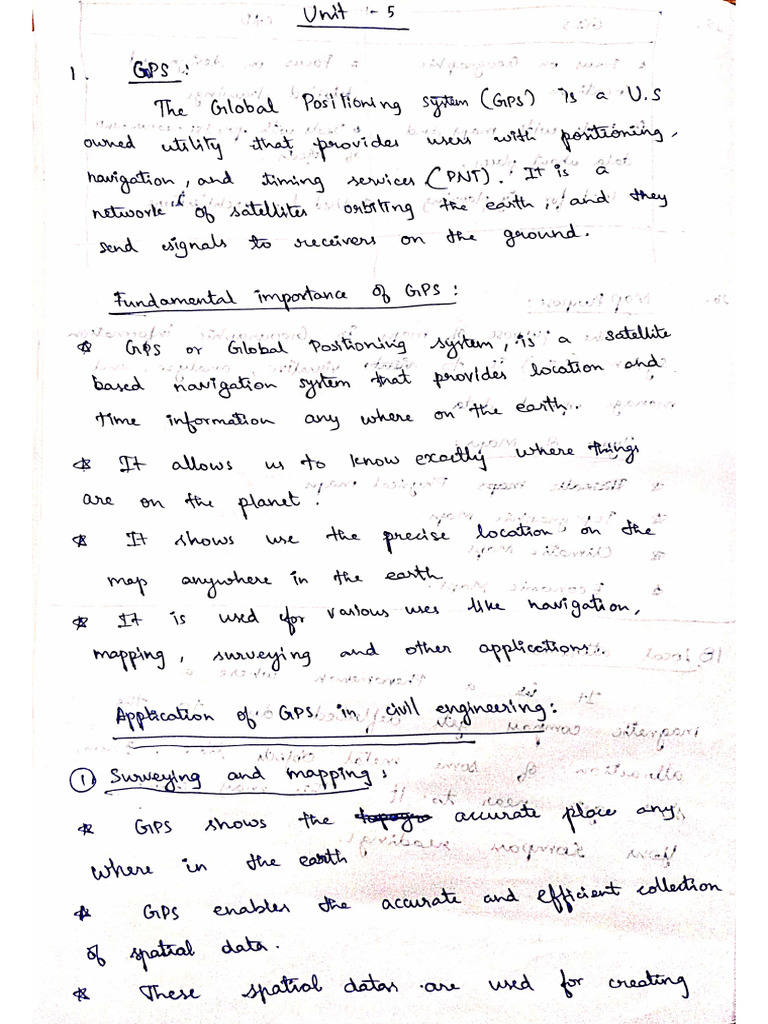 Unit :- 5
1. GPS :
The Global Positioning system (GPS) is a U.S
owned utility that provides users with positioning,
navigation, and timing services (PNT). It is a
network of satellites orbiting the earth, and they
send signals to receivers on the ground.
Fundamental importance of GPS :
* GPS or Global Positioning system, is a satellite
based navigation system that provides location and
time information any where on the earth.
* It allows us to know exactly where things
are on the planet.
* It shows use the precise location on the
map anywhere in the earth
* It is used for various uses like navigation,
mapping, surveying and other applications.
Application of GPS in civil engineering:
① Surveying and mapping :
* GPS shows the accurate place any
where in the earth
* GPS enables the accurate and efficient collection
of spatial data.
* These spatial datas are used for creating